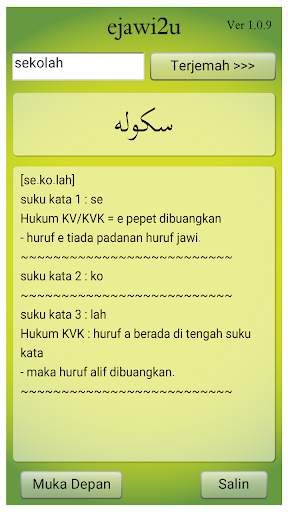 ejawi2u
Ver 1.0.9
sekolah
Terjemah >>>
سكوله
[se.ko.lah]
suku kata 1 : se
Hukum KV/KVK = e pepet dibuangkan
- huruf e tiada padanan huruf jawi.
~~~~~~~~~~~~~~~~~~~~~~~~~~
suku kata 2 : ko
~~~~~~~~~~~~~~~~~~~~~~~~~~
suku kata 3 : lah
Hukum KVK : huruf a berada di tengah suku
kata
- maka huruf alif dibuangkan.
~~~~~~~~~~~~~~~~~~~~~~~~~~
Muka Depan
Salin